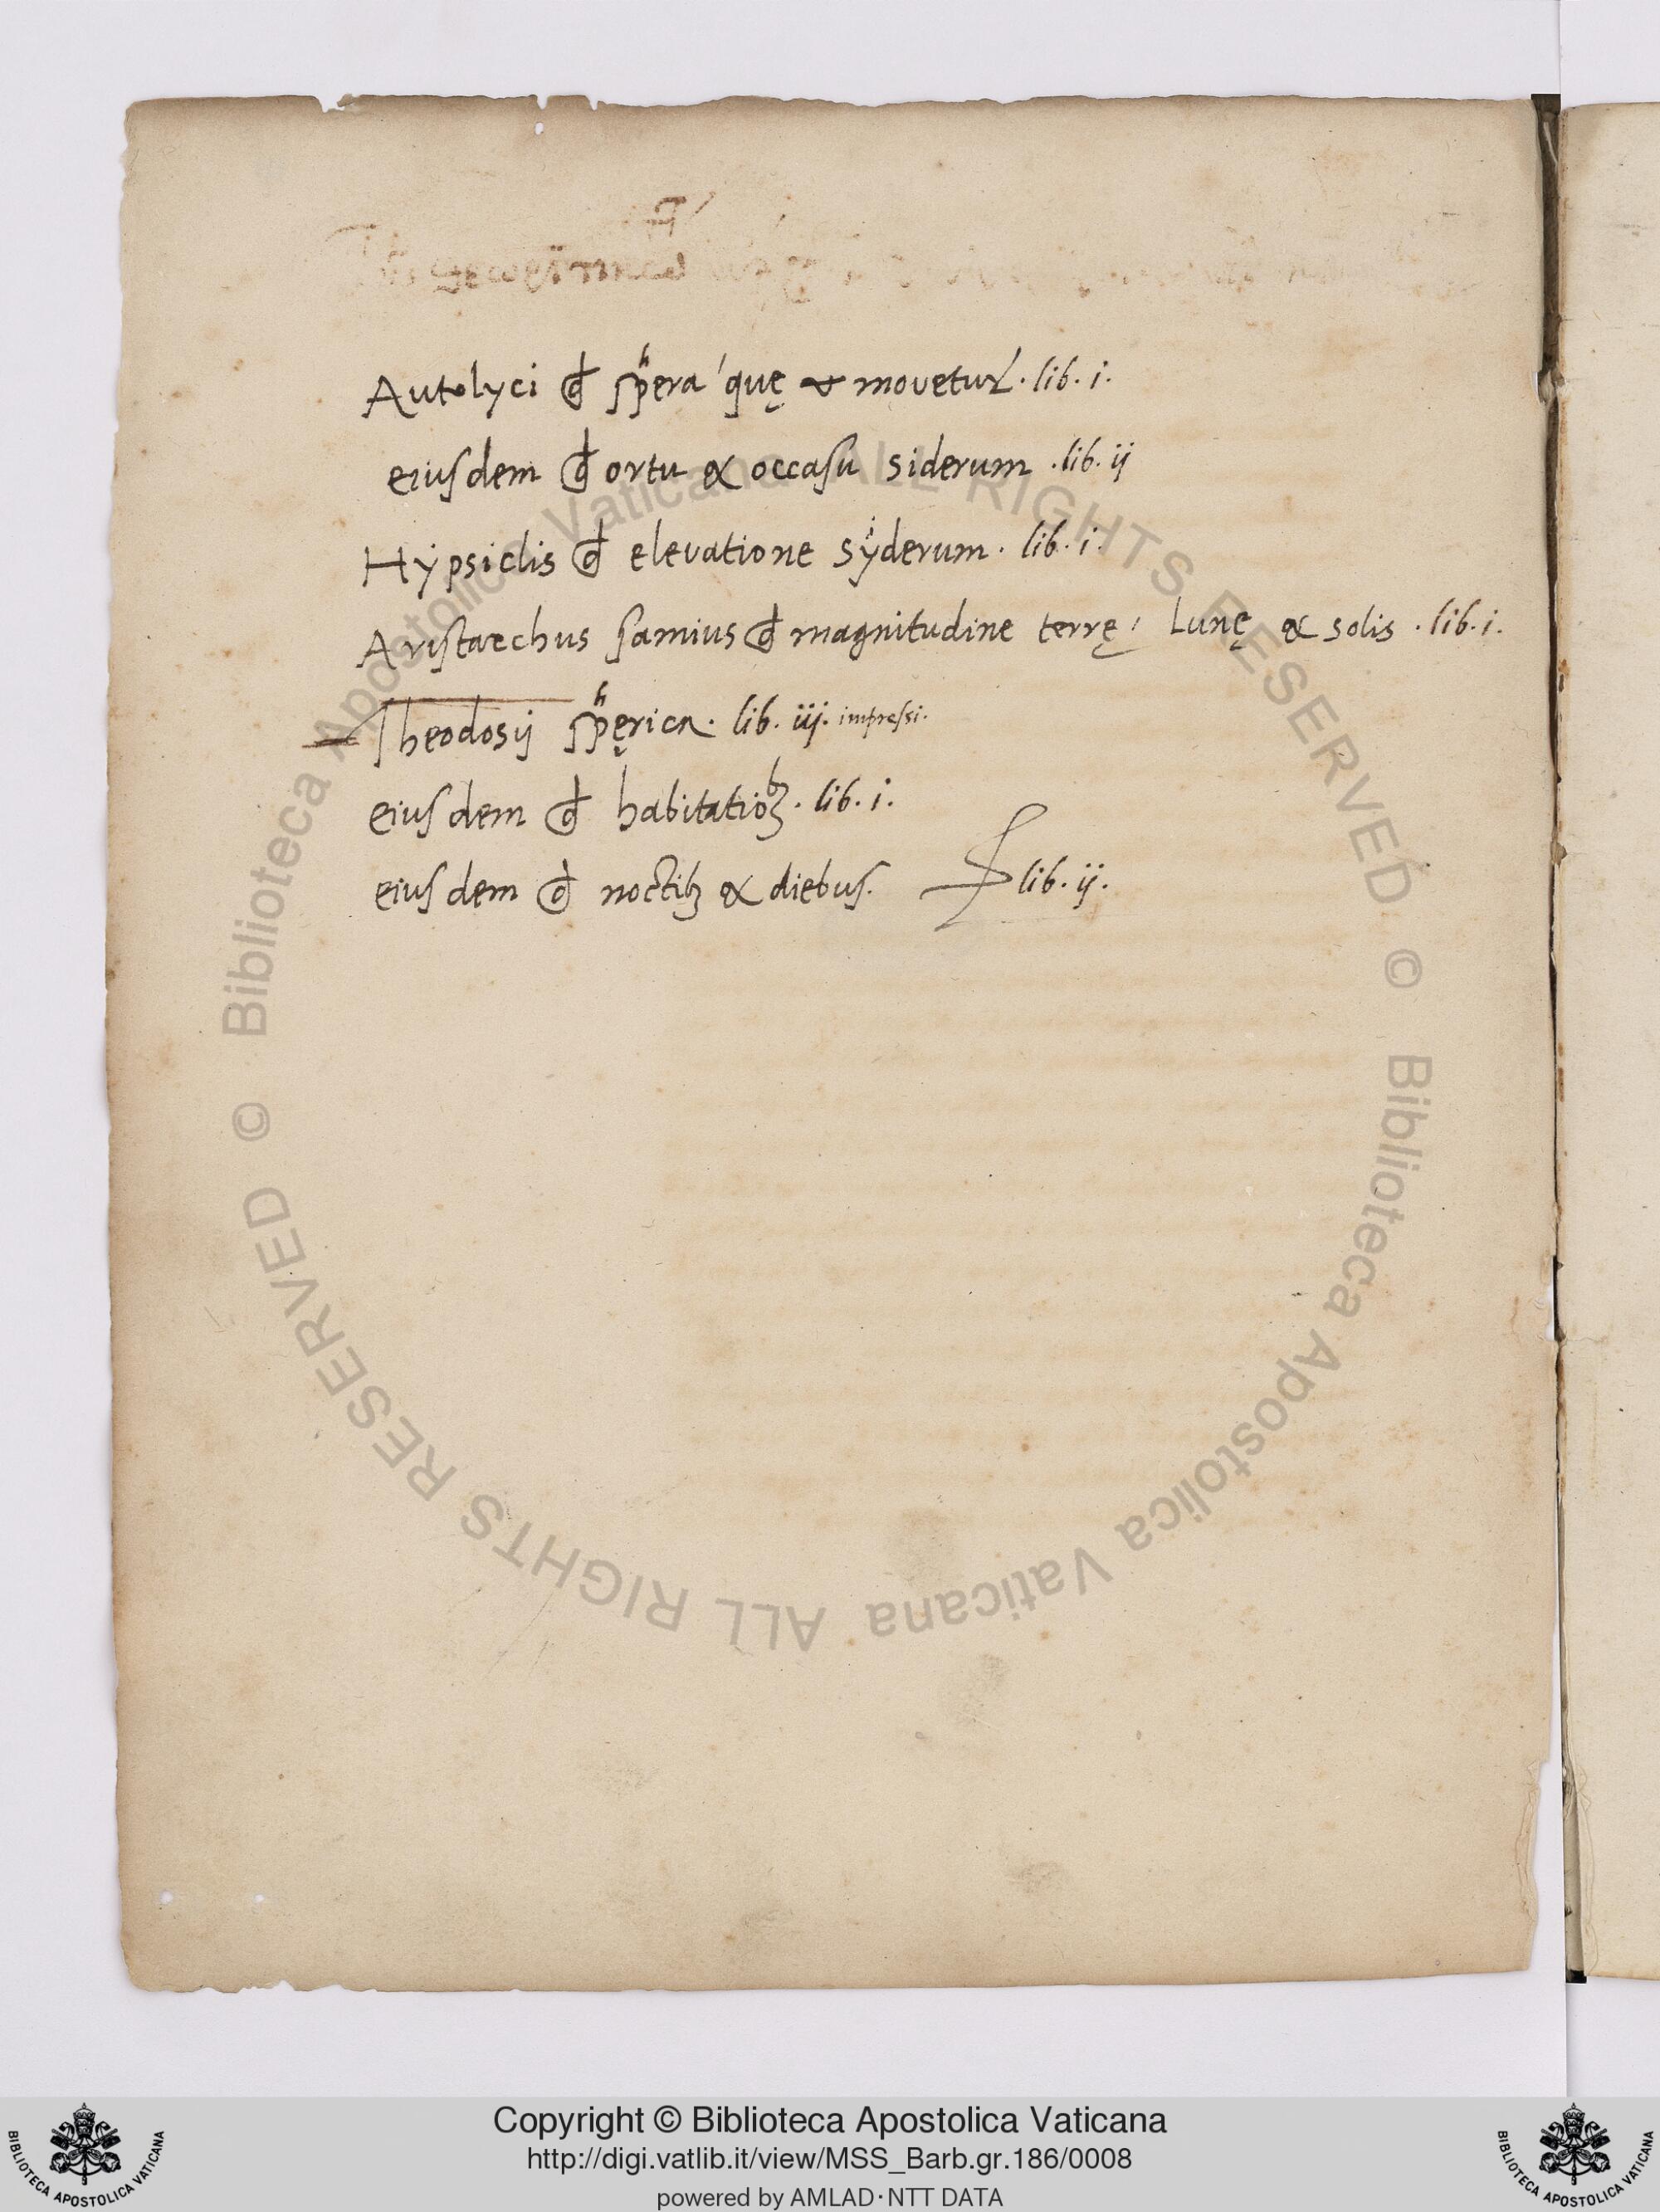 Autolyci đ sp̄hera quę & movetur. lib. i.
eiusdem đ ortu & occasu siderum . lib. ij
Hÿpsiclis đ elevatione sÿderum. lib. i.
Aristarchus samius đ magnitudine terrę, Lunę & solis . lib. i.
Theodosij sp̄hęrica. lib. iij. impressi.
eiusdem đ habitatiobꝫ. lib. i.
eiusdem đ noctibꝫ & diebus. lib. ij.
© Biblioteca Apostolica Vaticana ALL RIGHTS RESERVED
© Biblioteca Apostolica Vaticana ALL RIGHTS RESERVED
Copyright © Biblioteca Apostolica Vaticana
http://digi.vatlib.it/view/MSS_Barb.gr.186/0008
powered by AMLAD·NTT DATA
BIBLIOTECA APOSTOLICA VATICANA
BIBLIOTECA APOSTOLICA VATICANA